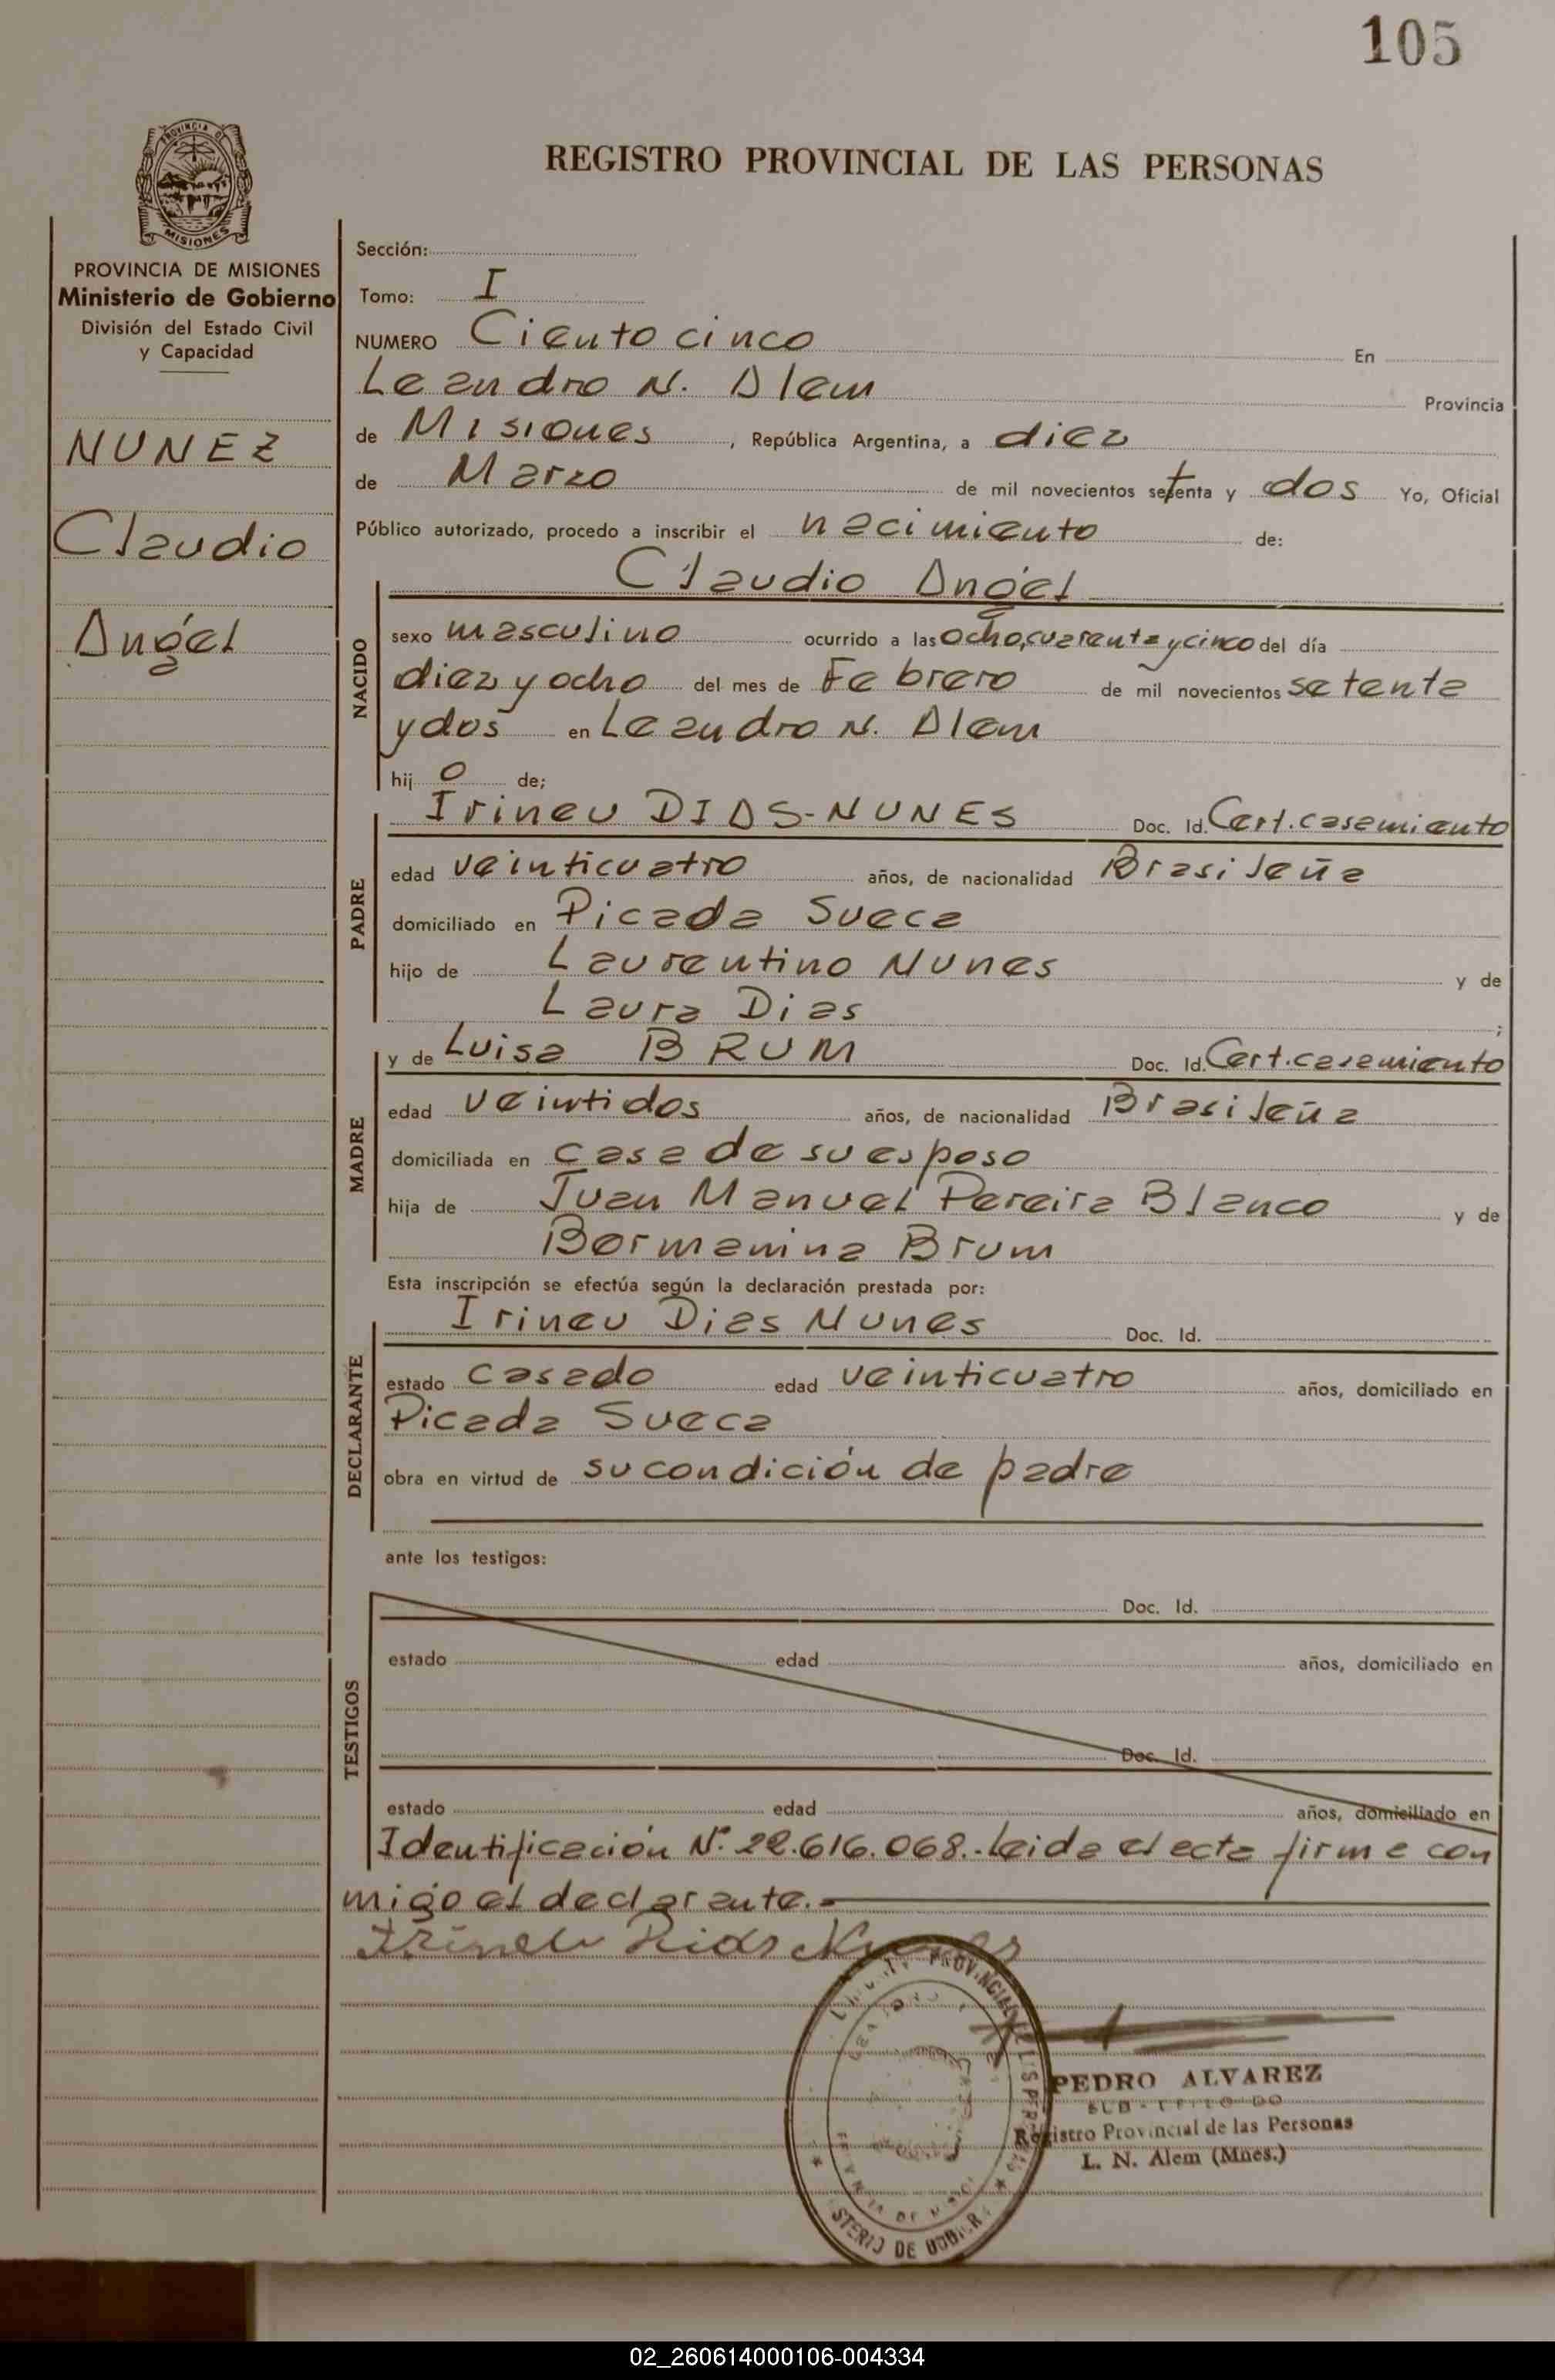 105
REGISTRO PROVINCIAL DE LAS PERSONAS
PROVINCIA DE MISIONES
Ministerio de Gobierno
División del Estado Civil
y Capacidad
NUNEZ
Claudio
Angel
Sección:
Tomo: I
NUMERO Ciento cinco En
Leandro N. Alem Provincia
de Misiones, República Argentina, a diez
de Marzo de mil novecientos setenta y dos Yo, Oficial
Público autorizado, procedo a inscribir el nacimiento de:
Claudio Angel
NACIDO
sexo masculino ocurrido a las ocho, cuarenta y cinco del día
diez y ocho del mes de Febrero de mil novecientos setenta
y dos en Leandro N. Alem
hij o de;
PADRE
Irineu DIAS-NUNES Doc. Id. Cert. casamiento
edad veinticuatro años, de nacionalidad Brasileña
domiciliado en Picada Sueca
hijo de Laurentino Nunes y de
Laura Dias ;
MADRE
y de Luisa BRUM Doc. Id. Cert. casamiento
edad veintidos años, de nacionalidad Brasileña
domiciliada en casa de su esposo
hija de Juan Manuel Pereira Blanco y de
Bormanina Brum
Esta inscripción se efectúa según la declaración prestada por:
DECLARANTE
Irineu Dias Nunes Doc. Id.
estado casado edad veinticuatro años, domiciliado en
Picada Sueca
obra en virtud de su condición de padre
ante los testigos:
TESTIGOS
Doc. Id.
estado edad años, domiciliado en
Doc. Id.
estado edad años, domiciliado en
Identificación Nº 22.616.068.- Leida el acta firma con
migo el declarante.-
Irineu Dias Nunes
PROVINCIAL
STERIO DE GOBIER
PEDRO ALVAREZ
Registro Provincial de las Personas
L. N. Alem (Mnes.)
02_260614000106-004334